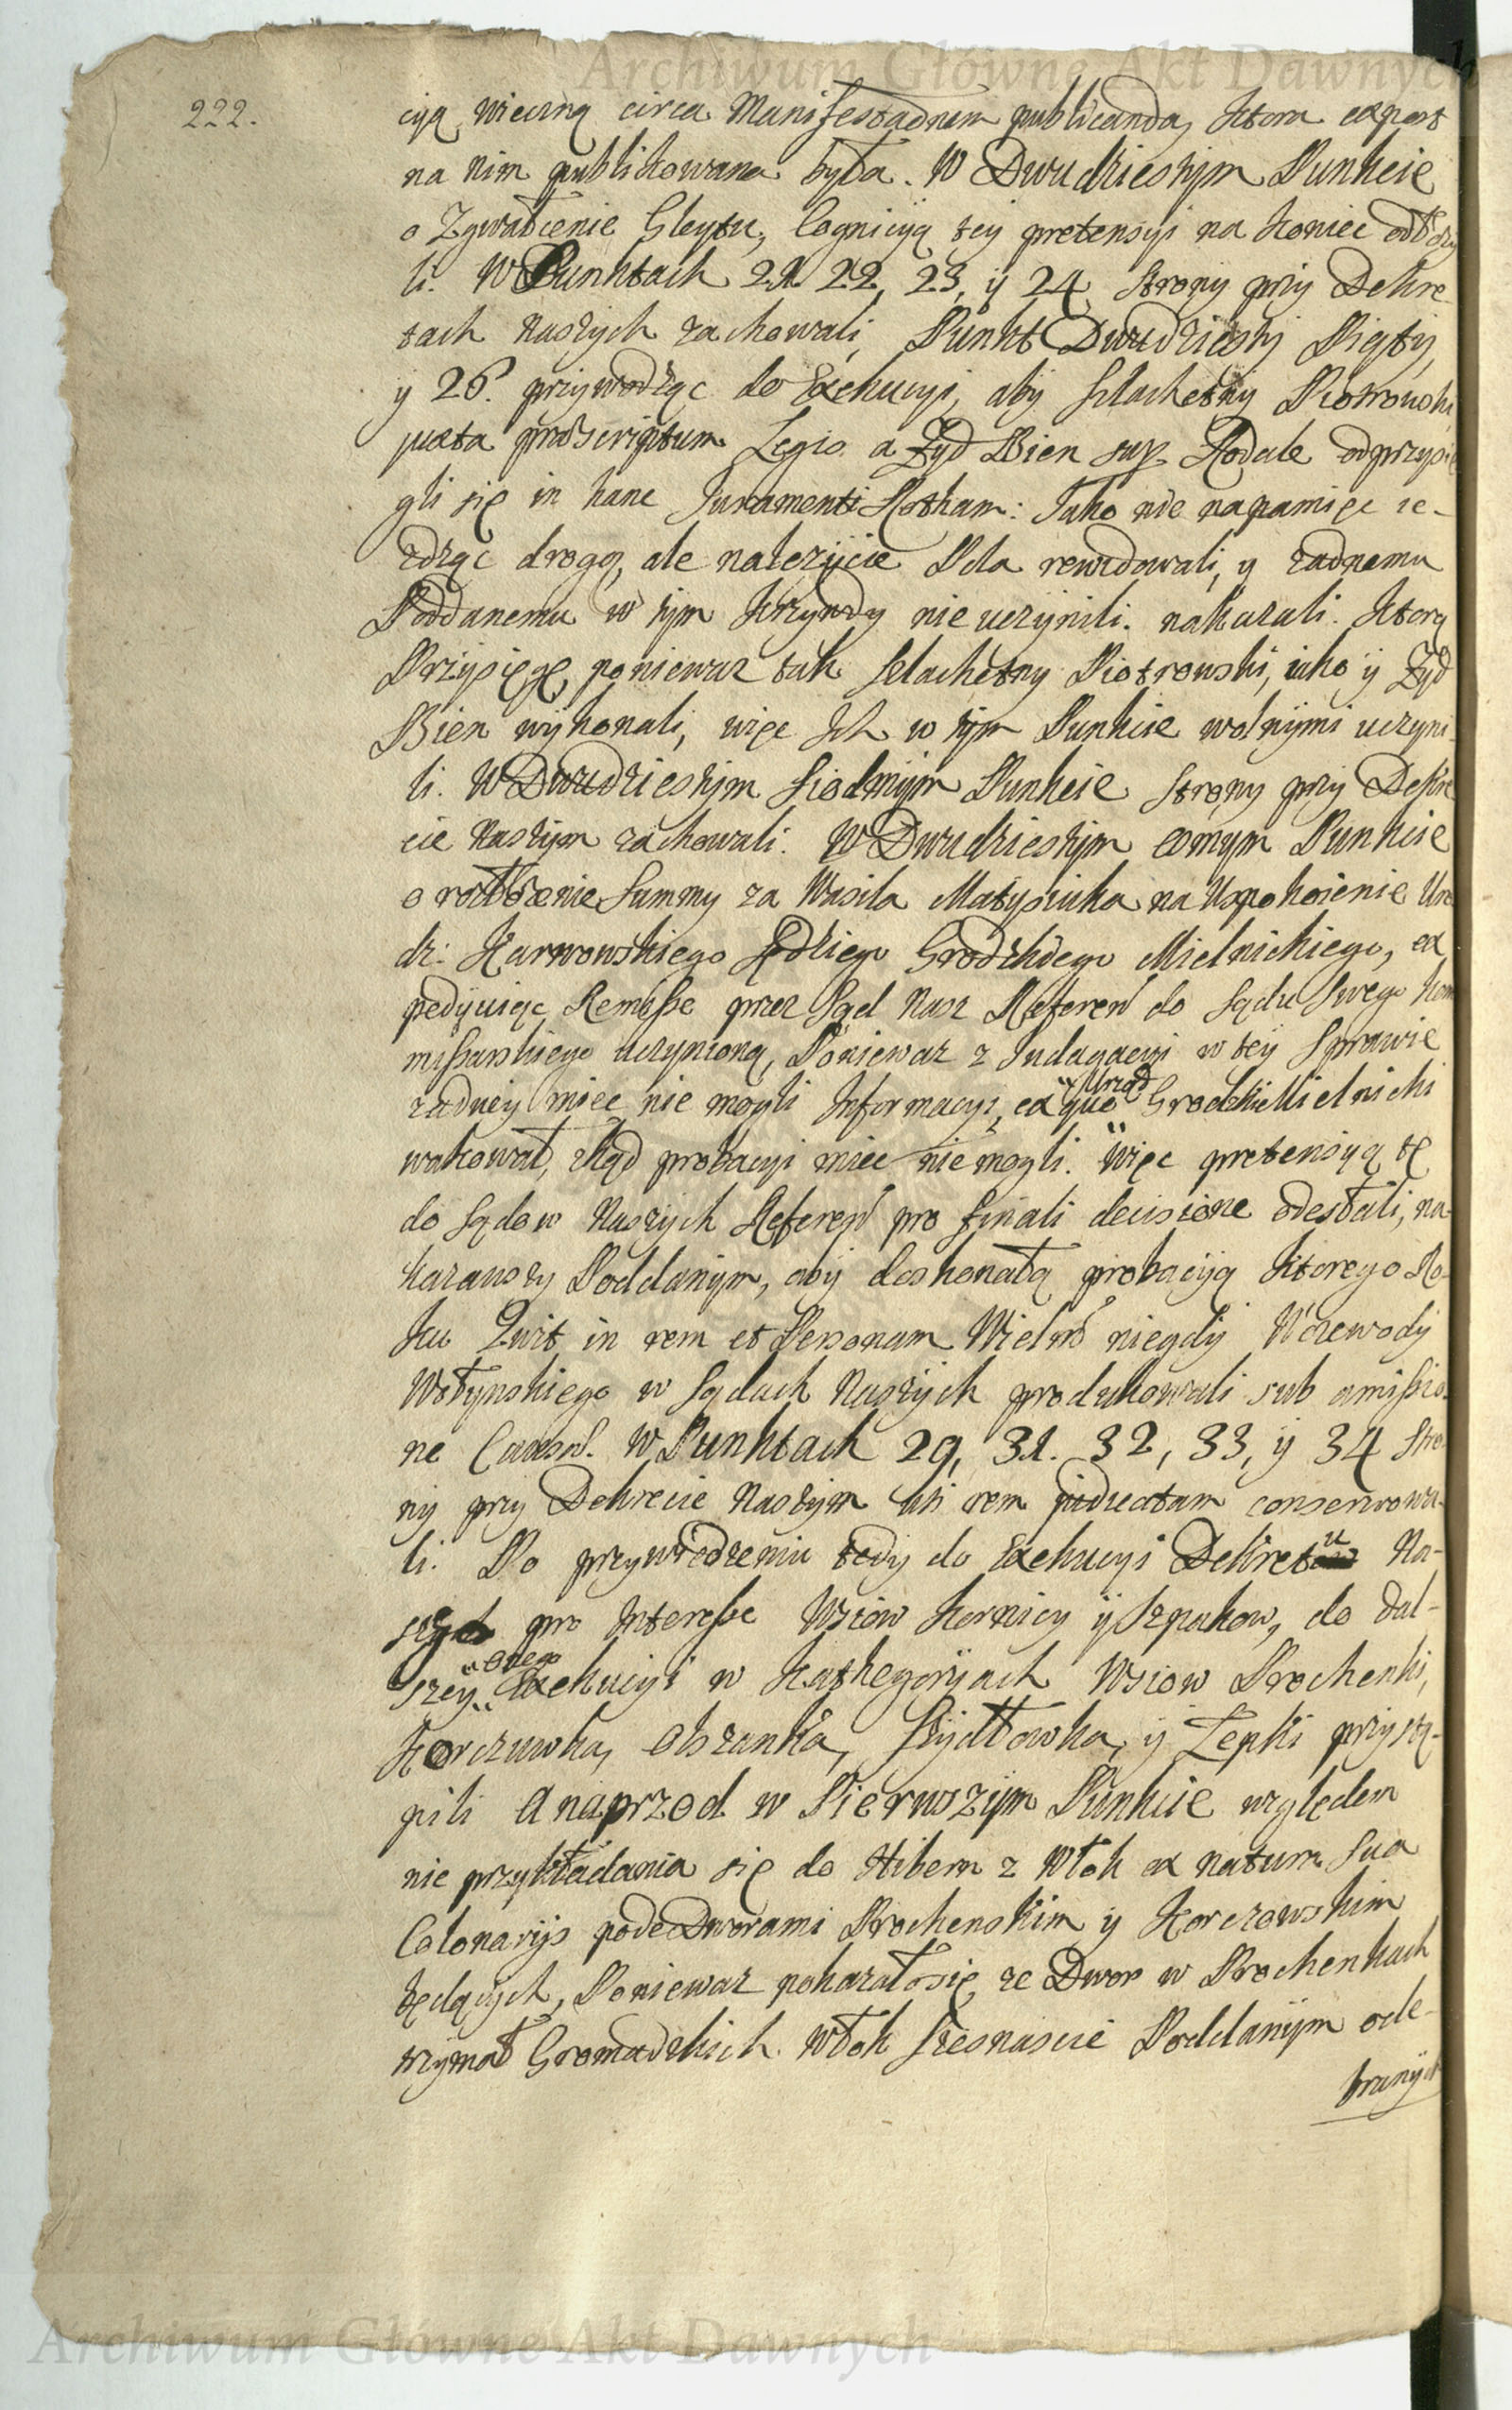 Archiwum Główne Akt Dawnych
222.
cyą wieczną circa Manifestadnem publicanda, ktora expost
na nim publikowana była. W Dwudziestym Punkcie
o Zgwałcenie Gleytu, Cognicyą tey pretensyi na koniec odłoży
li. W Punktach 21. 22, 23, y 24 Strony przy Dekre-
tach Naszych zachowali, Punkt Dwudziesty Piąty,
y 26. przywodząc do Exekucyi, aby Szlachetny Piotrowski
juxta praescriptum Legis a Żyd Bien sup. Rodale odprzysie
gli się in hanc Juramenti Rotham: Jako nie napamięc ie-
zdząc drogą, ale należycie Pola rewidowali, y żadnemu
Poddanemu w tym krzywdy nie uczynili. nakazali. Ktorą
Przysięgę, poniewaz tak Szlachetny Piotrowski, iako y Żyd
Bien wykonali, więc Ich w tym Punkcie wolnymi uczyni-
li. W Dwudziestym Siodmym Punkcie Strony przy Dekre
cie Naszym zachowali. W Dwudziestym osmym Punkcie
o Summy za Wasila Matysiuka na Uspokoienie Uro
dz: Karwowskiego Sędziego Grodzkiego Mielnickiego, ex
pedyuiąc Remisse przez Sąd Nasz Referen do Sądu Swego kom
missarskiego uczynioną, Poniewaz z Indagacyi w tey Sprawie
zadney miec nie mogli Informacyi, ex quo "Urząd" Grodzki Mielnicki
wakował, skąd probacyi miec nie mogli. więc pretensyą tę
do Sądow Naszych Referen pro finali decisione odesłali, na-
kazawszy Poddanym, aby doskonałą probacyą ktorego Ro-
ku Zwit in rem et Personam Wielmo niegdy Woiewody
Wołynskiego w Sądach Naszych produkowali sub amissio-
ne Causae. W Punktach 29, 31. 32, 33, y 34 Stro-
ny przy Dekrecie Naszym uti rem judicatam conserwowa-
li. Po przywiedzeniu tedy do Exekucyi Dekretu Na-
szego pro Interesse Wsiow Kornicy y Szpakow, do dal-
szey "onego" Exekucyi w Kathegoryach Wsiow Prochenki,
Korczuwka, Olszanka, Szydłowka, y Łepki przystą-
pili a naprzod w Pierwszym Punkcie względem
nie przykładania się do Hibern z Włok ex natura Sua
Colonarys pode Dworami Prochenskim y Korczowskim
będących, Poniewaz pokazało się, ze Dwor w Prochenkach
trzymał Gromadzkich Włok Szesnascie Poddanym ode-
branych
Archiwum Główne Akt Dawnych